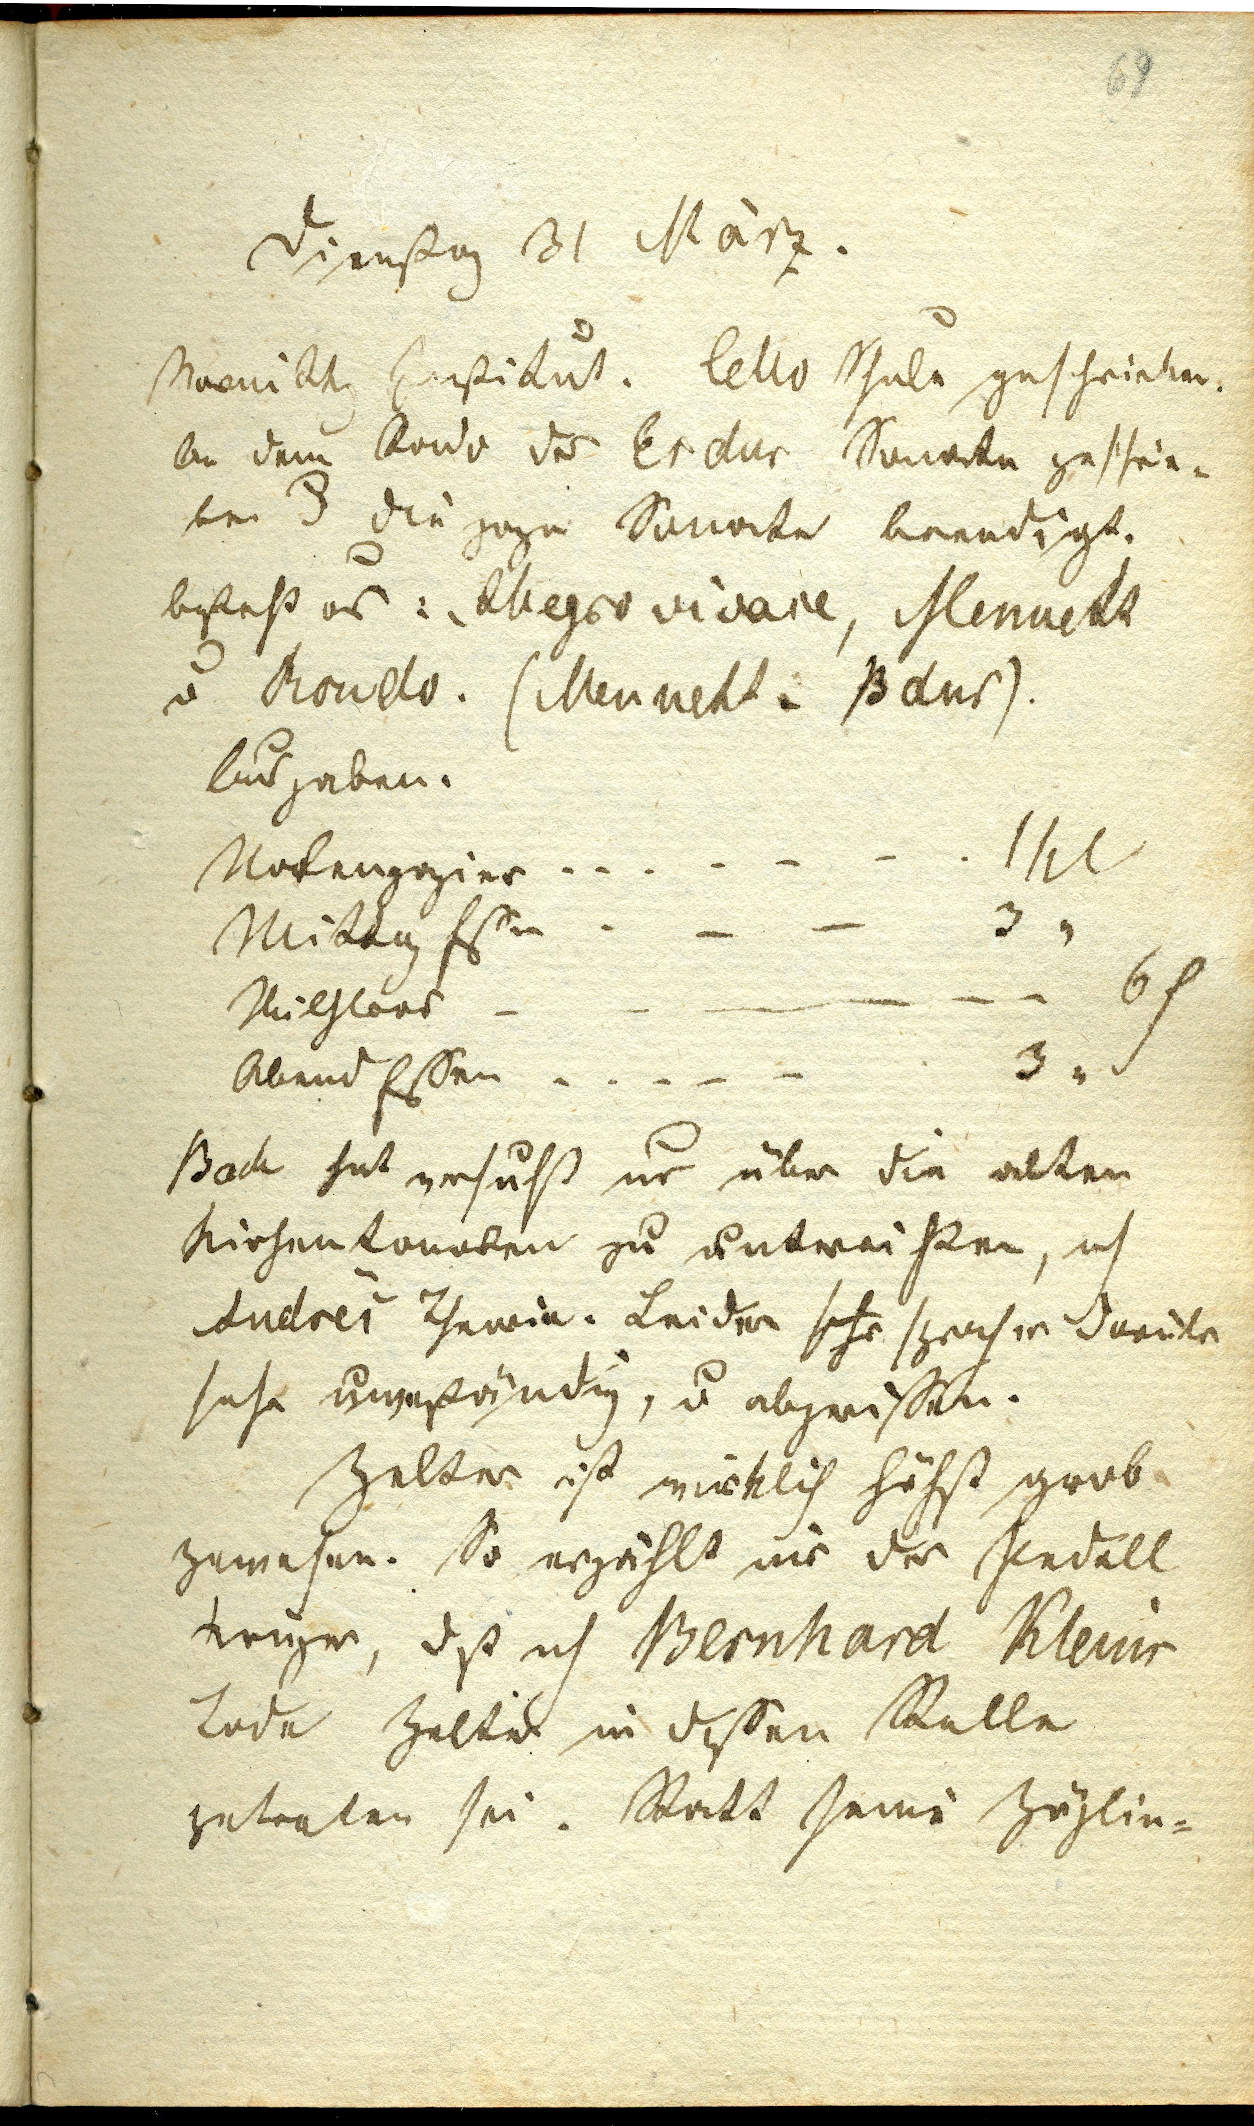 69
Dienstag 31 März.
Vormittg Institut. Cello Schule geschrieben.
An dem Rondo der Es dur Sonate geschrie-
ben & die ganze Sonate beendigt.
besteht aus: Allegro vivace, Menuett
u Rondo. (Menuett: B dur).
Ausgaben.
Notenpapier . . . - - - . 1 Sgl
Mittag Essen . - - 3 "
Milchbrod - - - - - 6 ₰
Abend Essen . . - - - 3 "
Bach hat versucht uns über die alten
Kirchentonarten zu unterrichten, nach
André's Theorie. Leider sprach er darüber
sehr unverständig, u abgerissen.
Zelter ist wirklich höchst grob
gewesen. So erzählt mir der Pedell
Kruger, dß nach Bernhard Kleins
Tode Zelter in dessen Stelle
getreten sei. Statt seine Zöglin-